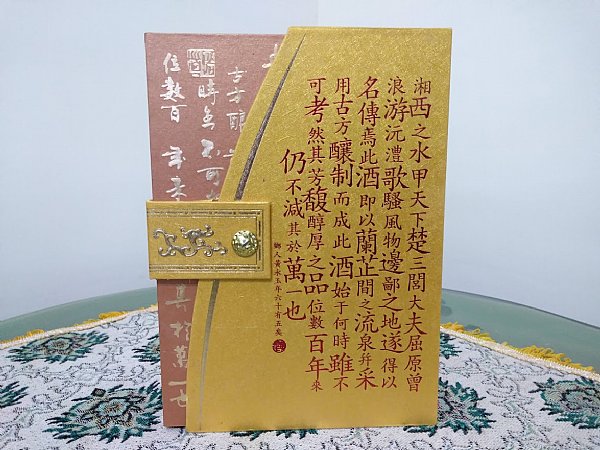 湘西之水甲天下楚三閭大夫屈原曾
浪游沅澧歌騷風物邊鄙之地遂得以
名傳焉此酒即以蘭芷間之流泉并采
用古方釀制而成此酒始于何時雖不
可考然其芳馥醇厚之品位數百年來
仍不減其於萬一也
鄉人黃永玉年六十有五矣
古方釀
時雖不可
位數百年來
其於萬一也